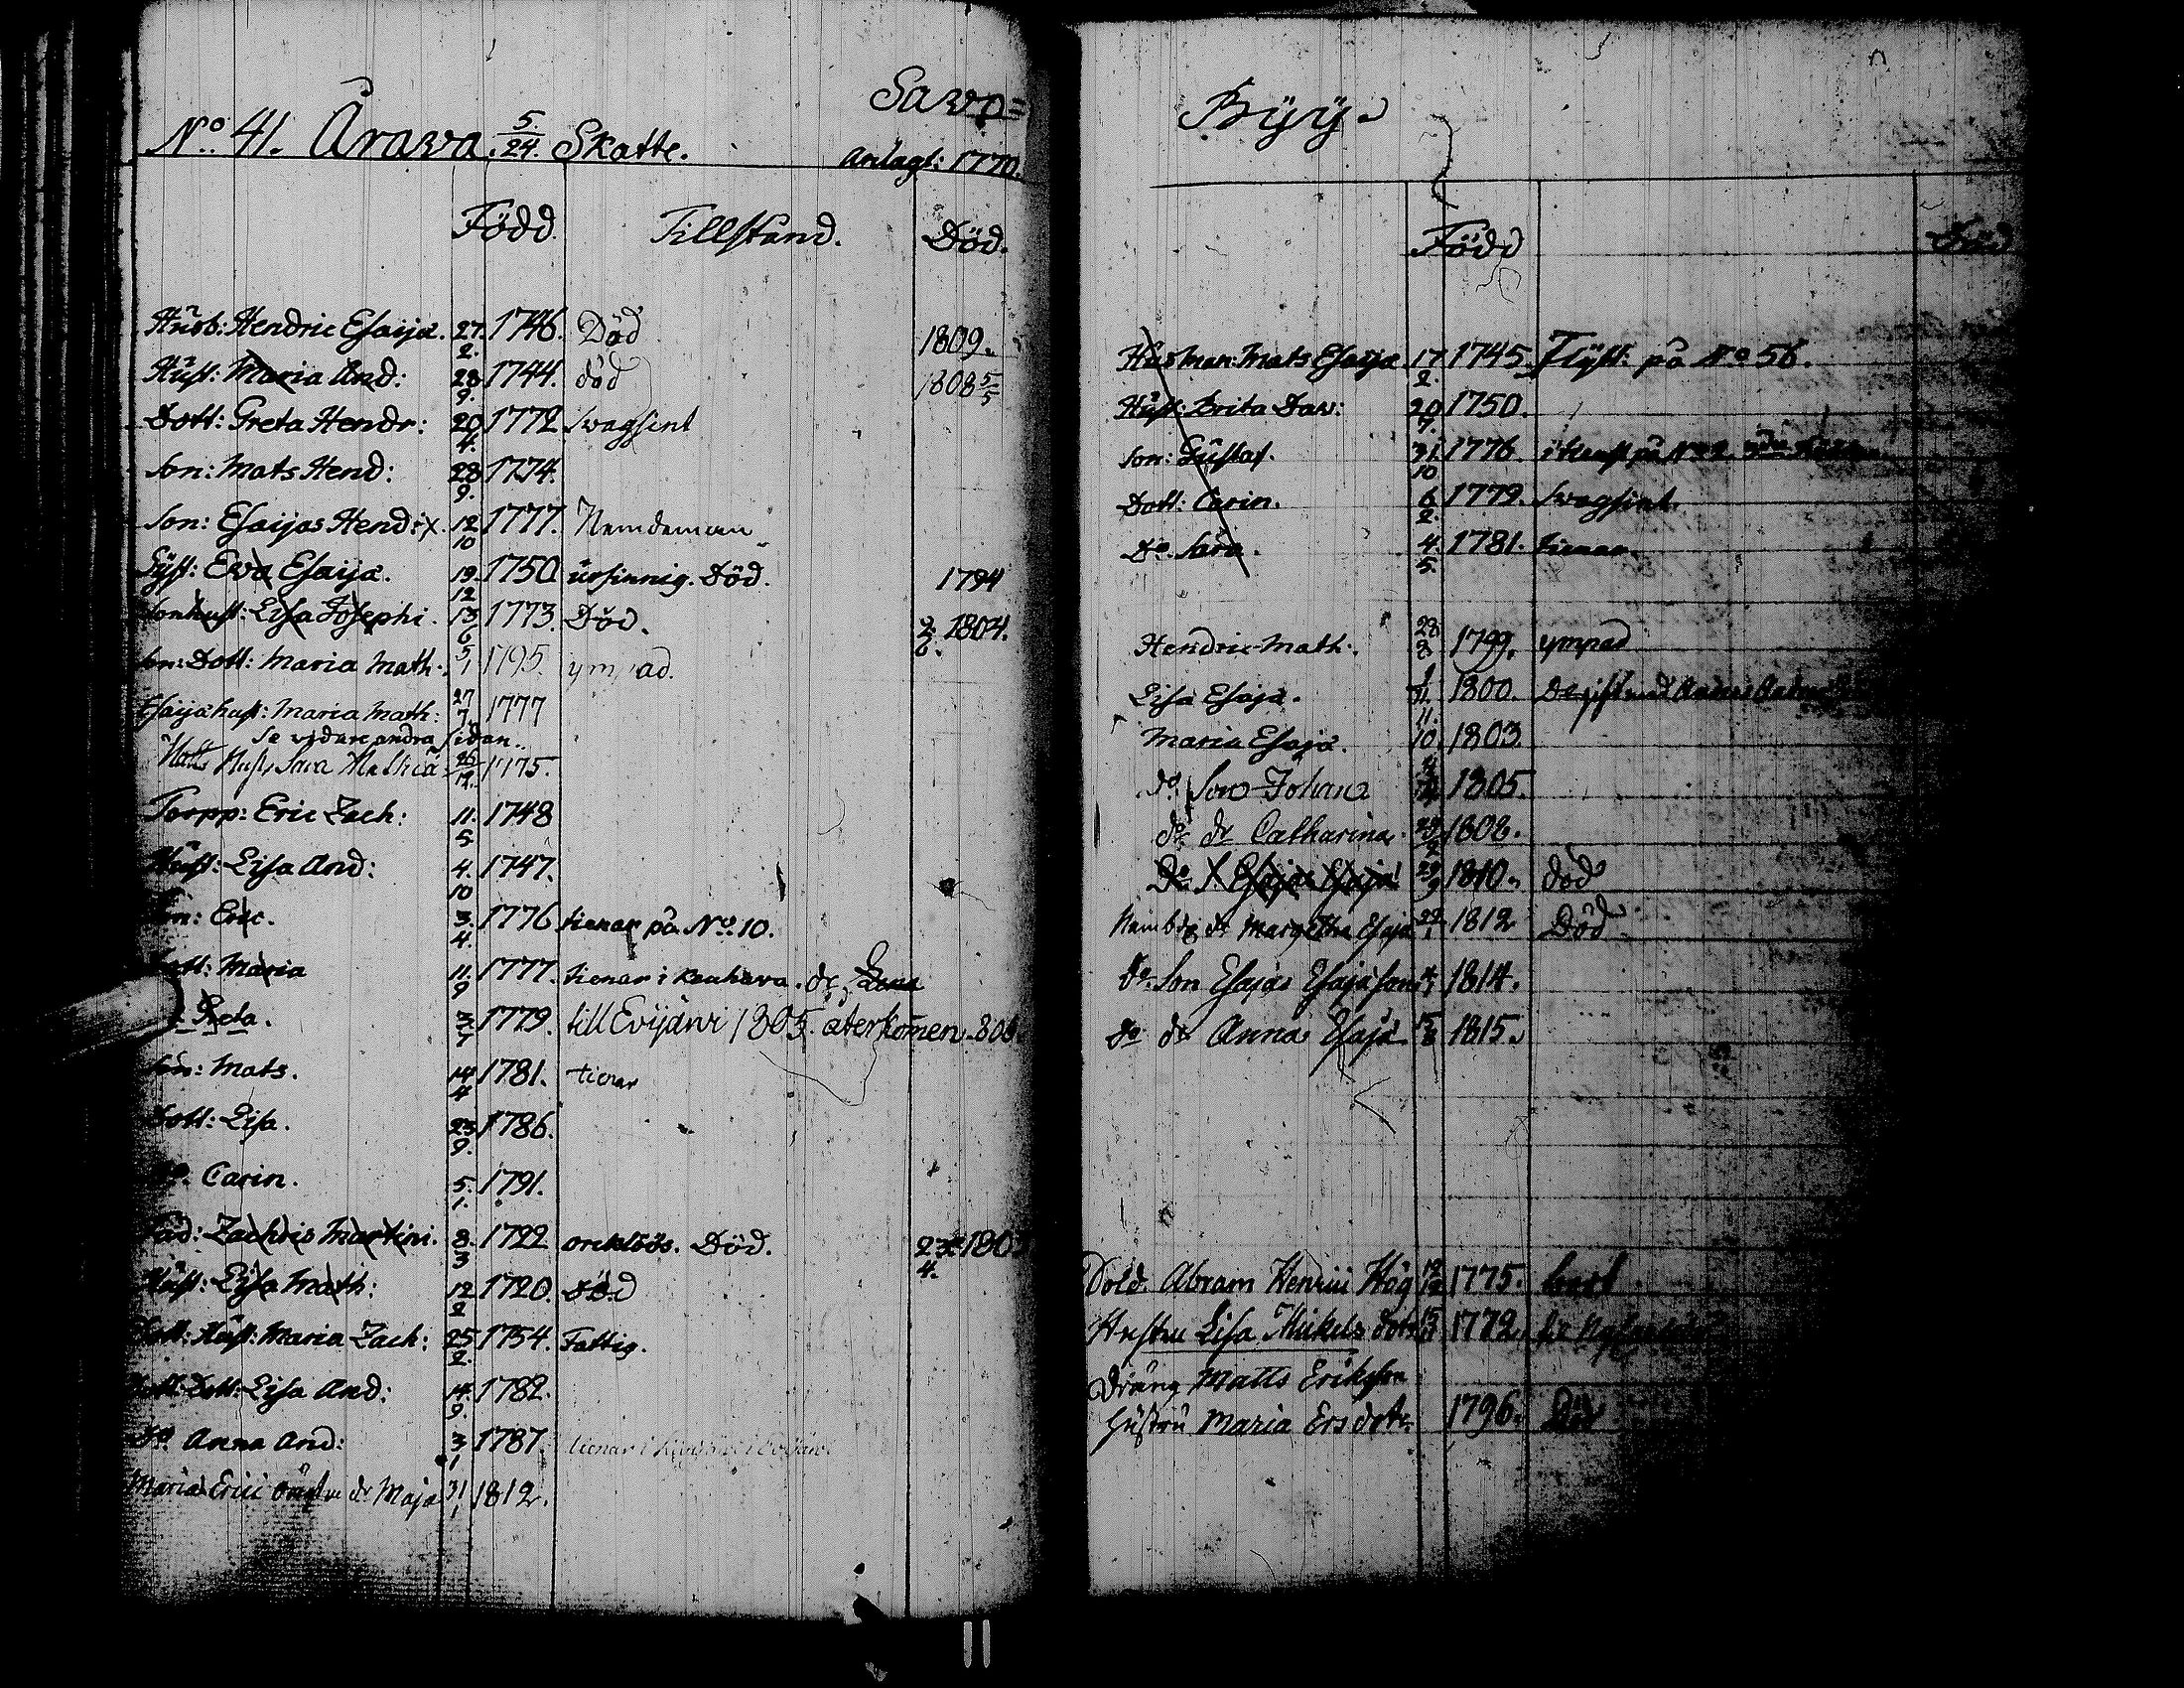 Sawo=
No. 41. Årawa. 5/24. Skatte. Anlagt: 1770.
Född. Tillstånd. Död.
Husb: Hendric Esaijæ. 27. 2. 1746. Död 1809.
Hust: Maria And: 28 9. 1744. död 1808 5/5
Dott: Greta Hendr: 20 4. 1772. Swagsint
Son: Mats Hend: 28 9. 1774.
Son: Esaijas Hendr. 12 10 1777. Nemdeman
Syst: Ewa Esaijæ. 19. 12 1750 ursinnig. Död. 1794
Sonhust: Lisa Josephi. 13. 6 1773. Död. 2. 6. 1804.
Son: Dott: Maria Math. 5 1 1795. ympad.
Esaijæ hust: Maria Math: 27 7. 1777
Se vidare andra sidan..
Matts Hust, Sara Mathiæ 26 12. 1775.
Torpp: Eric Zach: 11. 5 1748
Hust: Lisa And: 4. 10 1747.
Son: Eric. 3. 4. 1776 tienar på No. 10.
Dott: Maria 11. 9 1777. tienar i Kauhava. dr Lena
Greta. 3. 7 1779. till Evijärvi 1805. återkomen 806.
Son: Mats. 14 4 1781. tienar
Dott: Lisa. 23. 9. 1786.
Do. Carin. 5. 1. 1791.
Fad: Zachris Martini. 8. 3 1722 orcklös. Död. 23. 4. 180
Hust: Lisa Math: 12 2 1720. död
Dott: Hust: Maria Zach: 25 2. 1754. Fattig.
Dott: Dott: Lisa And: 14. 9. 1782.
Do. Anna And: 3 1 1787. tienar i
Maria Erici dr Maja 31 1 1812.
Byÿ.
Född Död
Husman: Mats Esaijæ 17. 2. 1745. Flytt: på No 56.
Hust: Brita Dav: 20 7. 1750.
Son: Gustaf. 31. 10 1776. på No 2
Dott: Carin. 6 2. 1779. Swagsint.
Do. Sara. 4. 5. 1781. tienar
Hendric Math. 28 8 1799. ympad
Lisa Esajæ. 1 11. 1800. Do gift med Anders
Maria Esajæ. 11. 10. 1803.
do. Son Johan 1805.
do dr Catharina. 1808.
Do S. Esajas Esajæ 29 9 1810. död
Nämd: dr Margetha Esajæ 22 1 1812 Död
do Son Esajas Esajæson 4 1 1814.
do dr Anna Esajæ. 15 8 1815.
Sold. Abram Henrici Hög 12 12 1775. bort
Hustru Lisa Mickels dotr 1772.
Dräng Matts Eriksson
Hustru Maria Ersdotr 1796. Död